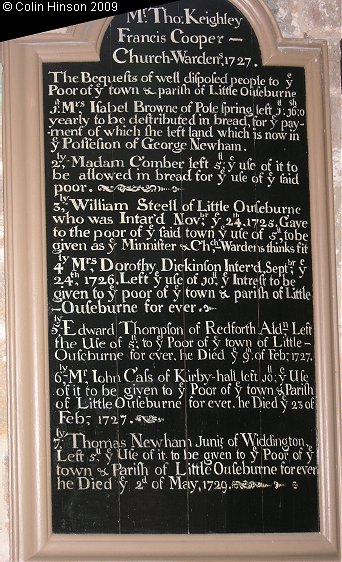 © Colin Hinson 2009
Mr. Tho. Keighley
Francis Cooper —
Church-Wardens, 1727.
The Bequests of well disposed people to ye
Poor of ye town & parish of Little Ouseburne
1st Mrs. Isabel Browne of Pole spring left
yearly to be destributed in bread, for ye pay-
ment of which she left land which is now in
ye Possession of George Newham.
2ly, Madam Comber left 5ll, ye use of it to
be allowed in bread for ye use of ye said
poor.
3ly, William Steell of Little Ouseburne
who was Intar'd Novbr ye 24th, 1725, Gave
to the poor of ye said town ye use of 5ll, to be
given as ye Minnister & Chch Wardens thinks fit
4ly Mrs, Dorothy Dickinson Inter'd, Septbr, ye
24th, 1726, Left ye use of 10ll, ye Intrest to be
given to ye poor of ye town & parish of Little
-Ouseburne for ever.
5ly Edward Thompson of Redforth Aldn Left
the Use of 5ll, to ye Poor of ye town of Little-
Ouseburne for ever, he Died ye 9th, of Feb: 1727.
6ly Mr, Iohn Cass of Kirby-hall left 10ll, ye Use
of it to be given to ye Poor of ye town & Parish
of Little Ouseburne for ever, he Died ye 23 of
Feb, 1727.
7ly Thomas Newham Junr, of Widdington
Left 5ll, ye Use of it, to be given to ye Poor of ye
town & Parish of Little Ouseburne for ever
he Died ye 2d of May, 1729.